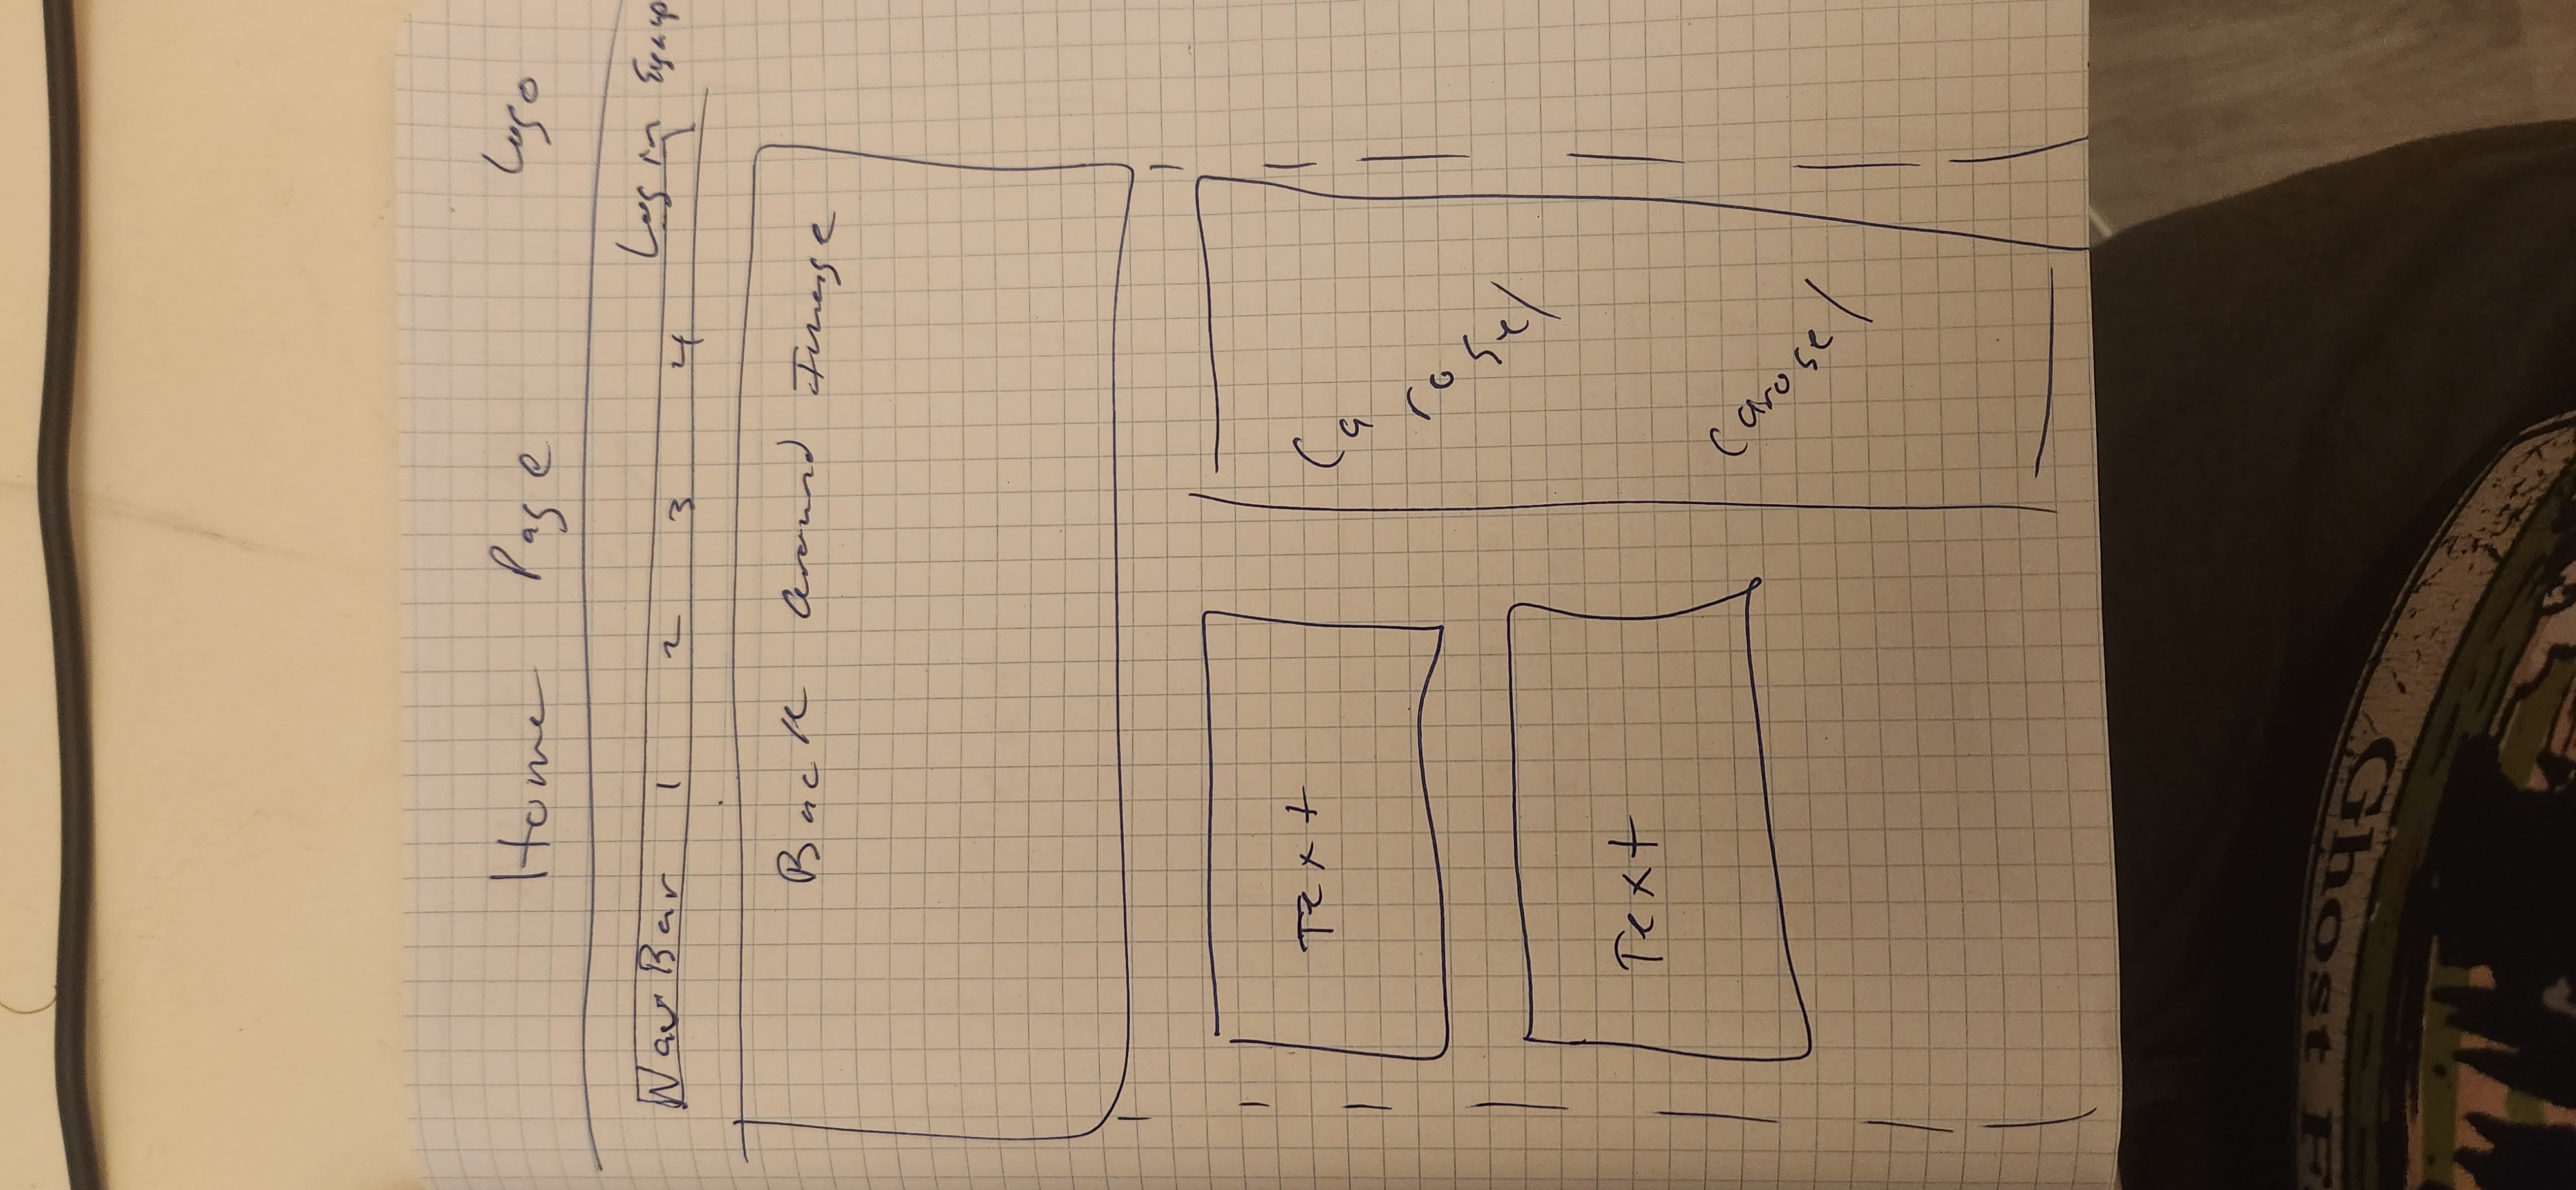 Home Page Logo
Nav Bar 1 2 3 4 Log in Signup
Back Ground Image
Text
Carosel
Text
Carosel
Ghost F